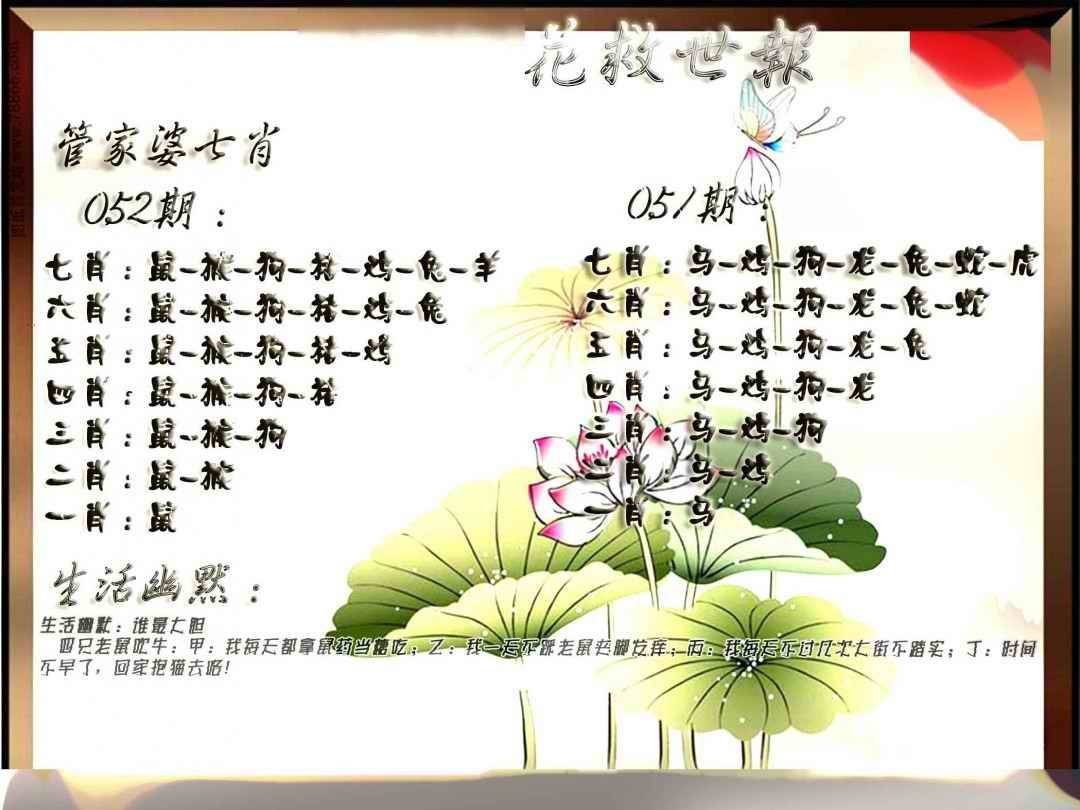 花救世報
管家婆七肖
052期：
七肖：鼠-猴-狗-猪-鸡-兔-羊
六肖：鼠-猴-狗-猪-鸡-兔
五肖：鼠-猴-狗-猪-鸡
四肖：鼠-猴-狗-猪
三肖：鼠-猴-狗
二肖：鼠-猴
一肖：鼠
051期：
七肖：马-鸡-狗-龙-兔-蛇-虎
六肖：马-鸡-狗-龙-兔-蛇
五肖：马-鸡-狗-龙-兔
四肖：马-鸡-狗-龙
三肖：马-鸡-狗
二肖：马-鸡
一肖：马
生活幽默：
生活幽默：谁最大胆
四只老鼠吹牛：甲：我每天都拿鼠药当糖吃；乙：我一天不踩老鼠夹脚发痒；丙：我每天不过几次大街不踏实；丁：时间
不早了，回家抱猫去咯！